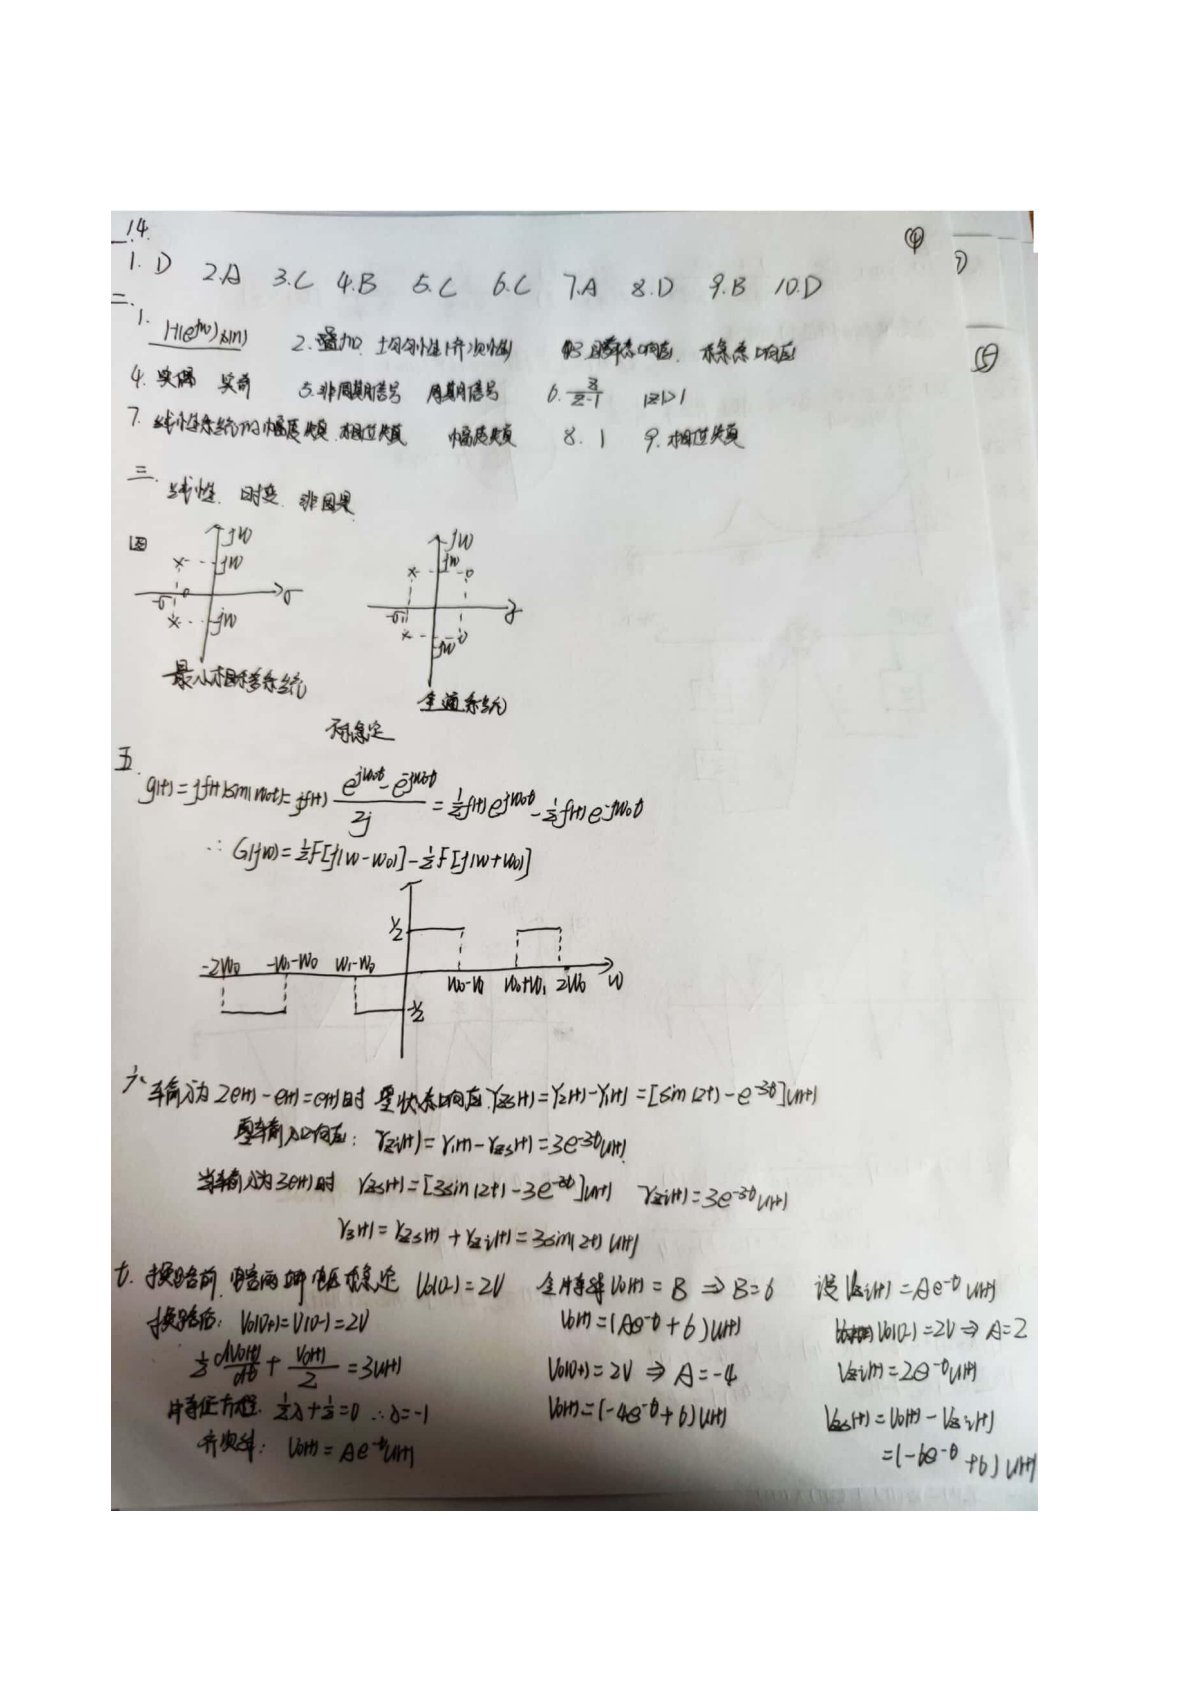 14.
④
一.
1. D 2.A 3.C 4.B 5.C 6.C 7.A 8.D 9.B 10.D
7)
二.
1. H(e^{jw})x(n) 2. 叠加、均匀性(齐次性) 3.瞬态响应、稳态响应
⑤
4. 实偶 实奇 5.非周期信号 周期信号 6. z/(z-1) |z|>1
7. 线性系统的幅度失真、相位失真 幅度失真 8. 1 9. 相位失真
三. 线性、时变、非因果
四
jw jw
jw jw
-σ 0 σ -σ₁ σ
jw jw
最小相移系统 全通系统
不稳定
五.
g(t)=jf(t)sin(w₀t)=jf(t) (e^{jw₀t}-e^{-jw₀t})/2j = ½f(t)e^{jw₀t} - ½f(t)e^{-jw₀t}
∴ G(jw)=½F[j(w-w₀)]-½F[j(w+w₀)]
½
-2w₀ -w₁-w₀ w₁-w₀ w₀-w₁ w₀+w₁ 2w₀ w
-½
六、 输入为 2e(t)-e(t)=e(t)时 零状态响应 γzs(t)=γ₂(t)-γ₁(t)=[sin(2t)-e^{-3t}]u(t)
零输入响应: γzi(t)=γ₁(t)-γzs(t)=3e^{-3t}u(t)
当输入为3e(t)时 γzs(t)=[3sin(2t)-3e^{-3t}]u(t) γzi(t)=3e^{-3t}u(t)
γ₃(t)=γzs(t)+γzi(t)=3sin(2t)u(t)
七. 换路前,电容两端电压稳定 V₀(0-)=2V 全特解V₀(t)=B ⇒ B=6 设Vzi(t)=Ae^{-t}u(t)
换路后: V₀(0+)=V(0-)=2V V₀(t)=(Ae^{-t}+6)u(t) V₀(0-)=2V ⇒ A=2
½ dV₀(t)/dt + V₀(t)/2 = 3u(t) V₀(0+)=2V ⇒ A=-4 Vzi(t)=2e^{-t}u(t)
特征方程: ½λ+½=0 ∴λ=-1 V₀(t)=(-4e^{-t}+6)u(t) Vzs(t)=V₀(t)-Vzi(t)
齐次解: V₀(t)=Ae^{-t}u(t) =(-6e^{-t}+6)u(t)